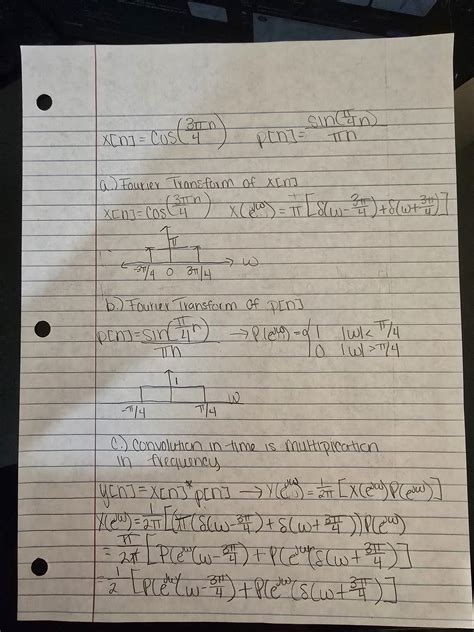 x[n] = cos(3πn/4) p[n] = sin(π/4 n)/πn
a.) Fourier Transform of x[n]
x[n] = cos(3πn/4) X(e^jω) = π[δ(ω-3π/4)+δ(ω+3π/4)]
π
-3π/4 0 3π/4 ω
b.) Fourier Transform of p[n]
p[n] = sin(π/4 n)/πn → P(e^jω) = { 1 |ω| < π/4
0 |ω| > π/4
1
-π/4 π/4 ω
c.) Convolution in time is multiplication
in frequency
y[n] = x[n] * p[n] → Y(e^jω) = 1/2π [X(e^jω)P(e^jω)]
Y(e^jω) = 1/2π [(π(δ(ω-3π/4)+δ(ω+3π/4))]P(e^jω)
= π/2π [P(e^jω(ω-3π/4)+P(e^jω(δ(ω+3π/4)]
= 1/2 [P(e^jω(ω-3π/4)+P(e^jω(δ(ω+3π/4)]